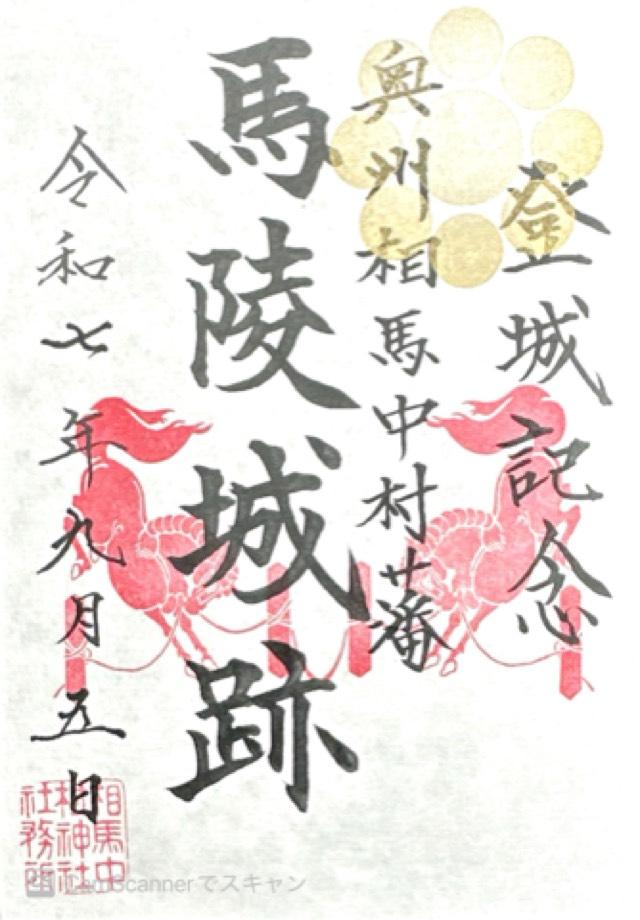 登城記念
奥州相馬中村藩
馬陵城跡
令和七年九月五日
相馬中
村神社
社務所
CamScannerでスキャン